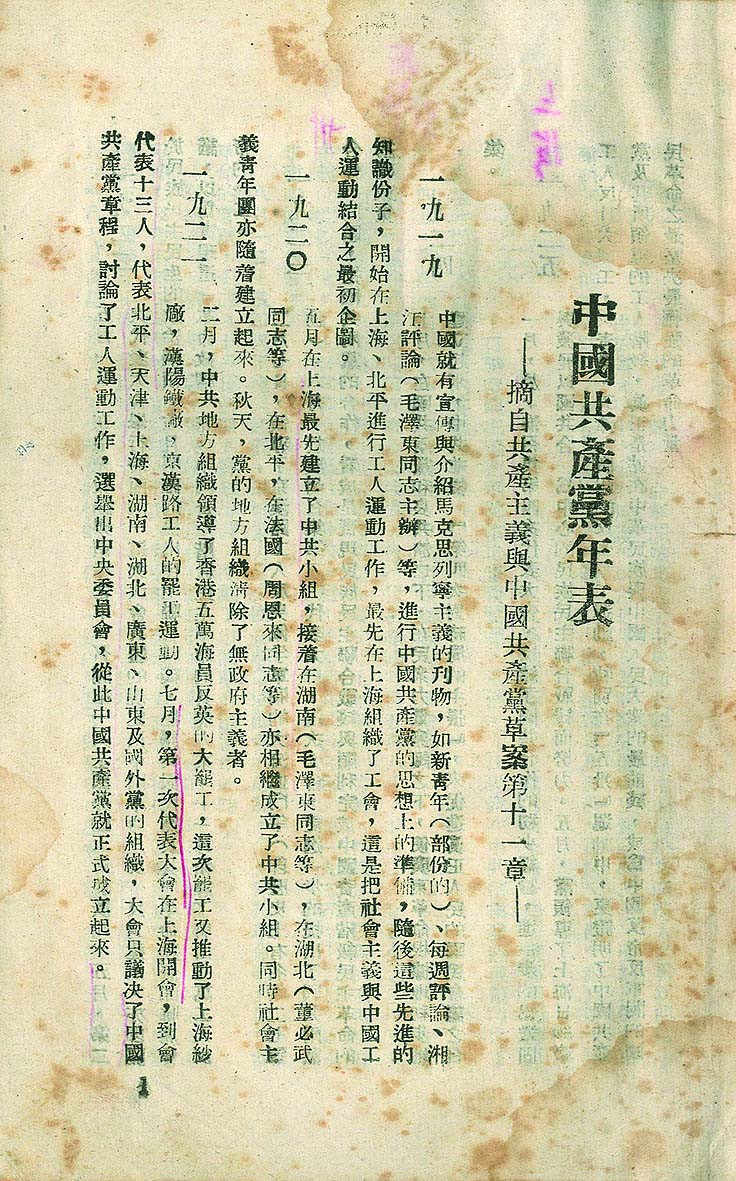 中國共產黨年表
——摘自共產主義與中國共產黨草案第十一章——
一九一九
中國就有宣傳與介紹馬克思列寧主義的刊物,如新青年(部份的)、每週評論、湘
江評論(毛澤東同志主辦)等,進行中國共產黨的思想上的準備,隨後這些先進的
知識份子,開始在上海、北平進行工人運動工作,最先在上海組織了工會,這是把社會主義與中國工
人運動結合之最初企圖。
一九二〇
五月在上海最先建立了中共小組,接着在湖南(毛澤東同志等),在湖北(董必武
同志等),在北平,在法國(周恩來同志等)亦相繼成立了中共小組。同時社會主
義青年團亦隨着建立起來。秋天,黨的地方組織清除了無政府主義者。
一九二一
二月,中共地方組織領導了香港五萬海員反英的大罷工,這次罷工又推動了上海紗
廠,漢陽鐵廠,京漢路工人的罷工運動。七月,第一次代表大會在上海開會,到會
代表十三人,代表北平、天津、上海、湖南、湖北、廣東、山東及國外黨的組織,大會只議决了中國
共產黨章程,討論了工人運動工作,選舉出中央委員會,從此中國共產黨就正式成立起來。
1